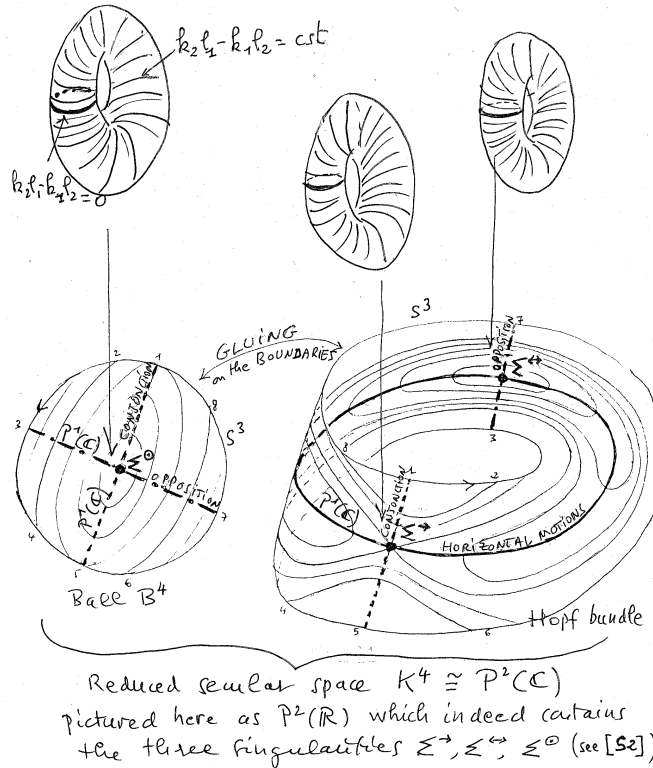 k₂l₁-k₁l₂ = cst
k₂l₁-k₁l₂=0
S³
GLUING
on the BOUNDARIES
OPPOSITION
7
Σ↔
3
2
1
CONJONCTION
8
S³
3
P¹(ℂ)
Σ⊙
OPPOSITION
7
P¹(ℂ)
4
5
6
Ball B⁴
8
1
2
P¹(ℂ)
CONJONCTION
Σ→
HORIZONTAL MOTIONS
4
5
6
Hopf bundle
Reduced secular space K⁴ ≅ P²(ℂ)
pictured here as P²(ℝ) which indeed contains
the three singularities Σ→, Σ↔, Σ⊙ (see [S2])